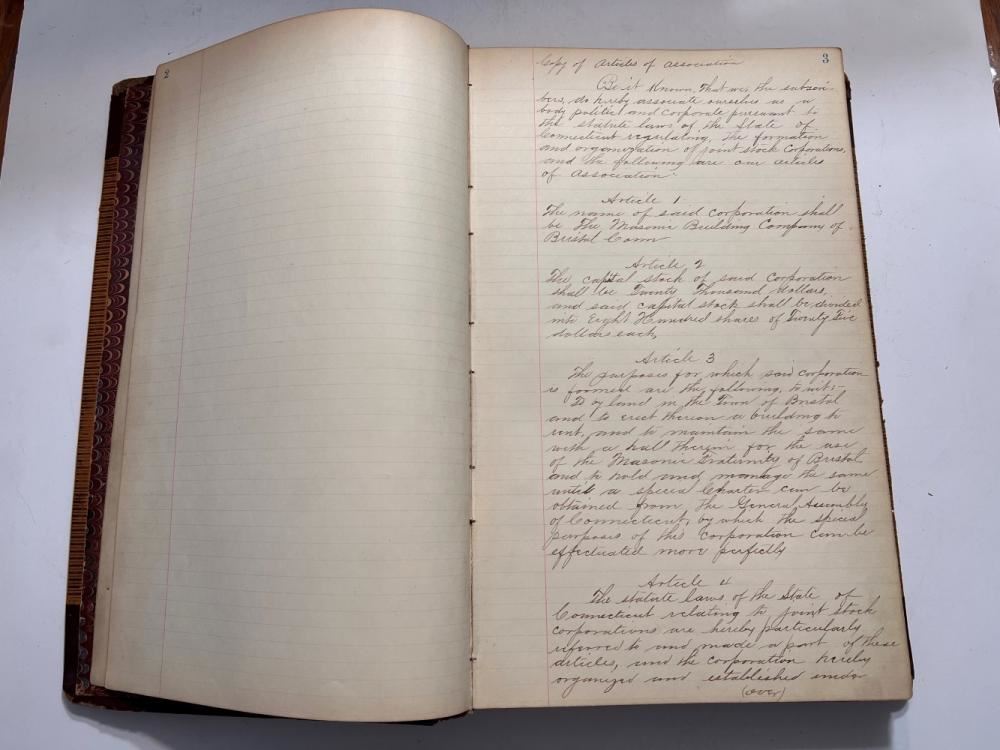 2
3
Copy of Articles of Association
Be it Known, That we, the subscri-
bers, do hereby associate ourselves as a
body politic and corporate pursuant to
the statute laws of the State of
Connecticut regulating, the formation
and organization of joint stock Corporations,
and the following are our articles
of Association:
Article 1
The name of said corporation shall
be The Masonic Building Company of
Bristol Conn
Article 2
The capital stock of said Corporation
shall be Twenty Thousand dollars,
and said capital stock shall be divided
into Eight Hundred shares of Twenty Five
dollars each,
Article 3
The purposes for which said corporation
is formed are the following, to wit:-
To oy land in the Town of Bristol
and to erect thereon a building to
rent, and to maintain the same
with a hall therein for the use
of the Masonic Fraternity of Bristol
and to hold and manage the same
until a special Charter can be
obtained from the General Assembly
of Connecticut, by which the special
purposes of this Corporation can be
effectuated more perfectly
Article 4
The statute laws of the State of
Connecticut relating to joint stock
corporations are hereby particularly
referred to and made a part of these
articles, and the corporation hereby
organized and established under
(over)